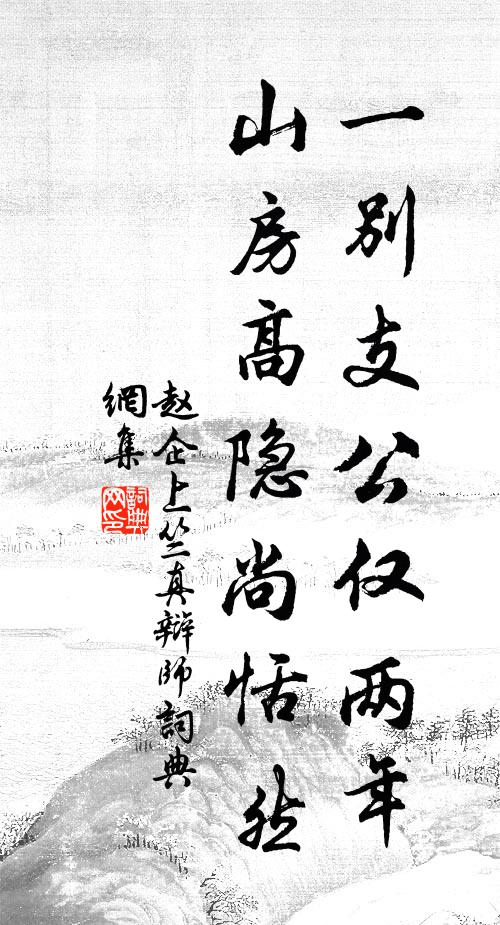 一别支公仅两年
山房高隐尚恬然
赵企上竺真辩师詞典
網集
詞典
网印